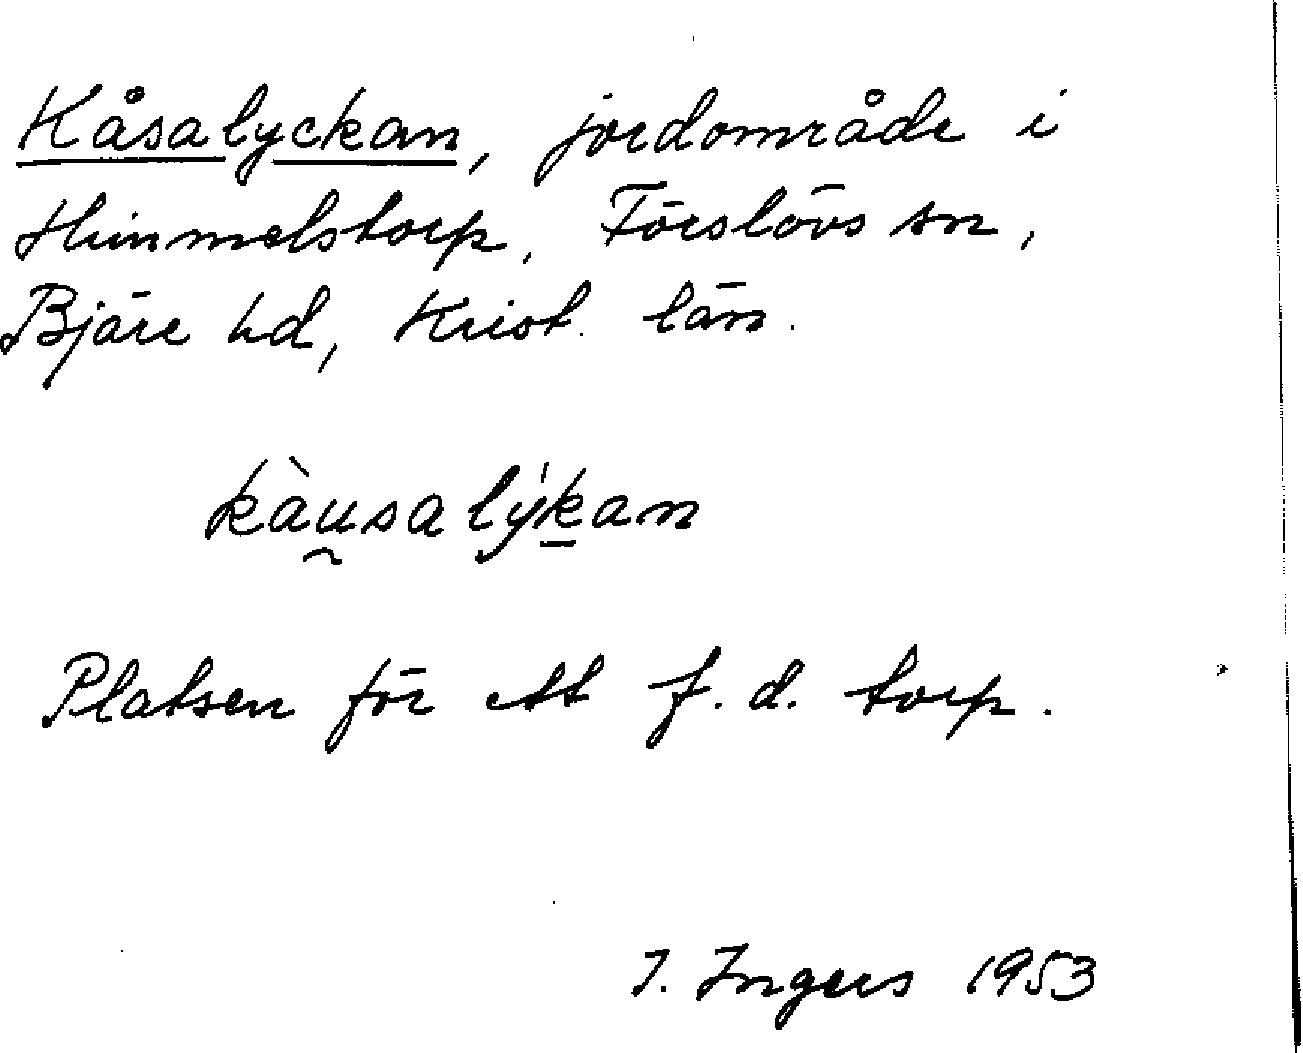 Kåsalyckan, jordområde i
Himmelstorp, Förslövs sn,
Bjäre hd, Krist. län.
kàu̯salýḵan
Platsen för ett f.d. torp.
I. Ingers 1953